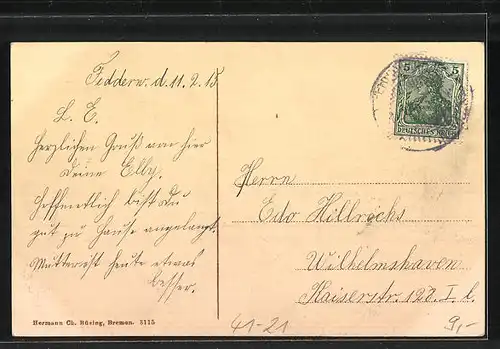 Fedderw. d. 11. 2. 15
L. E.
Herzlichen Gruß von hier
Deine Elly.
Hoffentlich bist Du
gut zu Hause angelangt.
Mutter ist heute etwas
besser.
Hermann Ch. Büsing, Bremen. 5115
5 5
DEUTSCHES REICH
Herrn
Edo Hillrichs
Wilhelmshaven
Kaiserstr. 123. I. l.
41-21
9,-